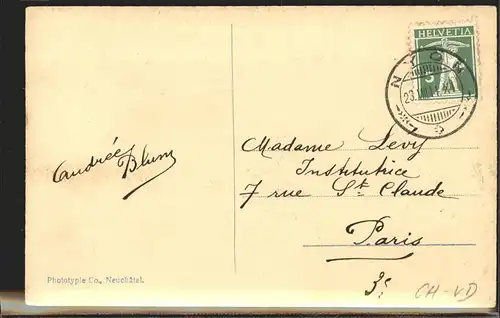 HELVETIA
5
NYON
Andrée
Blum
Madame Levy
Institutrice
7 rue St. Claude
Paris
3e
Phototypie Co., Neuchâtel.
CH-VD